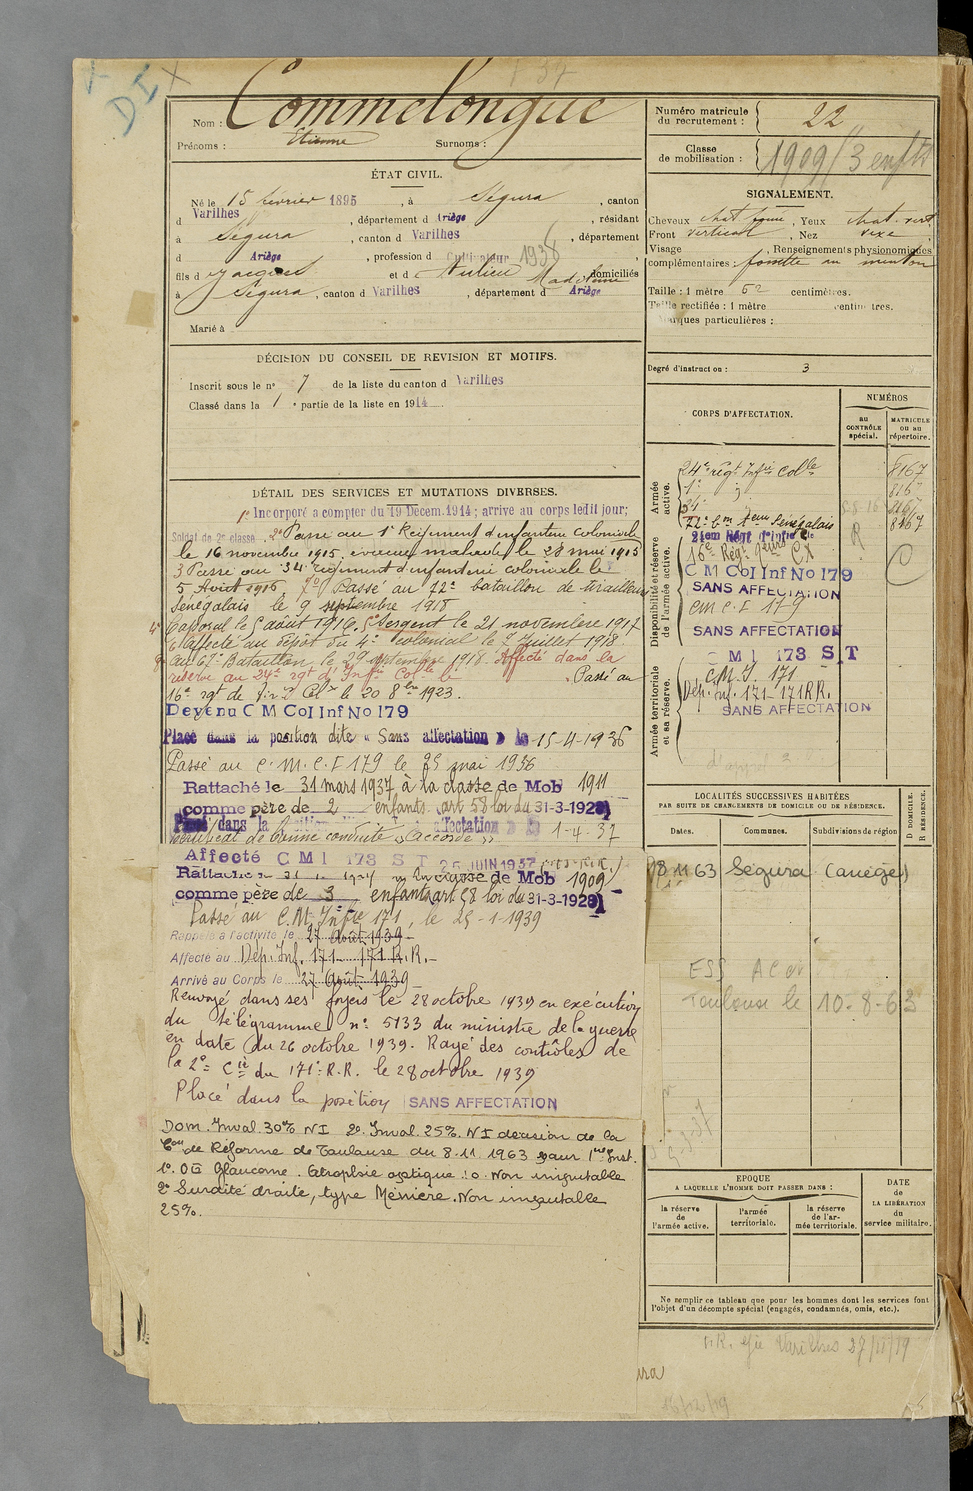 Nom : Commelongue
Prénoms : Etienne Surnoms :
ÉTAT CIVIL.
Né le 15 février 1895, à Ségura, canton
d Varilhes, département d Ariège, résidant
à Ségura, canton d Varilhes, département
d Ariège, profession d Cultivateur 1938
fils d Jacques et d Madeleine, domiciliés
à Ségura, canton d Varilhes, département d Ariège
Marié à
DÉCISION DU CONSEIL DE REVISION ET MOTIFS.
Inscrit sous le n° 7 de la liste du canton d Varilhes
Classé dans la 1e partie de la liste en 1914.
DÉTAIL DES SERVICES ET MUTATIONS DIVERSES.
1° Incorporé à compter du 19 Décem. 1914; arrivé au corps ledit jour;
Soldat de 2e classe. 2° Passé au 1e Régiment d'infanterie coloniale
le 16 novembre 1915, évacué malade le 28 mai 1915
3 Passé au 34e régiment d'infanterie coloniale le
5 Août 1916. 7° Passé au 72e bataillon de tirailleurs
Sénégalais le 9 septembre 1918
4° Caporal le 6 août 1916. 5° Sergent le 21 novembre 1917
6° Affecté au dépôt du 4e colonial le 7 Juillet 1918.
au 67e Bataillon le 29 septembre 1918. Affecté dans la
réserve au 24e rgt d'Inf. Colle le Passé au
16e rgt de le 20 8bre 1923.
Devenu C M Col Inf No 179
Placé dans la position dite « Sans affectation » le 15-4-1936
Passé au C.M.C.I 179 le 25 mai 1936
Rattaché le 31 mars 1937 à la classe de Mob 1911
comme père de 2 enfants (art 58 loi du 31-3-1928)
Placé dans la position dite « Sans affectation » le 1-4-37
Certificat de bonne conduite « Accordé »
Affecté C M I 173 S T 25 JUIN 1937
Rattaché le 31 classe de Mob 1909
comme père de 3 enfants art 58 loi du 31-3-1928)
Passé au C.M. Infie 171, le 25-1-1939
Rappelé à l'activité le 27 Août 1939
Affecté au Dép. Inf. 171 - 171 R.R.
Arrivé au Corps le 27 Août 1939
Renvoyé dans ses foyers le 28 octobre 1939 en exécution
du télégramme n° 5133 du ministre de la guerre
en date du 26 octobre 1939. Rayé des contrôles de
la 2e Cie du 171e R.R. le 28 octobre 1939
Placé dans la position SANS AFFECTATION
Dom. Inval. 30% NI 2° Inval. 25%. NI décision de la
Con de Réforme de Toulouse du 8.11.1963 pour 1ère Inst.
1°. OG Glaucome. Atrophie optique. :0. Non imputable
2° Surdité droite, type Ménière. Non imputable
25%.
Numéro matricule
du recrutement : 22
Classe
de mobilisation : 1909/3 enfts
SIGNALEMENT.
Cheveux chat foncé, Yeux chat. vert
Front vertical, Nez vexe
Visage, Renseignements physionomiques
complémentaires : fossette au menton
Taille : 1 mètre 62 centimètres.
Taille rectifiée : 1 mètre centimètres.
Marques particulières :
Degré d'instruction : 3
CORPS D'AFFECTATION.
NUMÉROS
au
CONTRÔLE
spécial.
MATRICULE
ou au
répertoire.
Armée
active.
24e régt Infie Colle 8167
1e 816
34e
72e Bon Tirem Sénégalais 8167
Disponibilité et réserve
de l'armée active.
R
16e Régt
C M Col Inf No 179
SANS AFFECTATION
cm c.I 179
SANS AFFECTATION
Armée territoriale
et sa réserve.
M I 173 S T
C.M.I. 171
Dép. Inf. 171-171 R.R.
SANS AFFECTATION
LOCALITÉS SUCCESSIVES HABITÉES
PAR SUITE DE CHANGEMENTS DE DOMICILE OU DE RÉSIDENCE.
Dates.
Communes.
Subdivisions de région
D DOMICILE.
R RÉSIDENCE.
8 11 63 Ségura (Ariège)
Toulouse le 10-8-63
EPOQUE
A LAQUELLE L'HOMME DOIT PASSER DANS :
la réserve
de
l'armée active.
l'armée
territoriale.
la réserve
de l'ar-
mée territoriale.
DATE
de
LA LIBÉRATION
du
service militaire.
Ne remplir ce tableau que pour les hommes dont les services font
l'objet d'un décompte spécial (engagés, condamnés, omis, etc.).
Varilhes